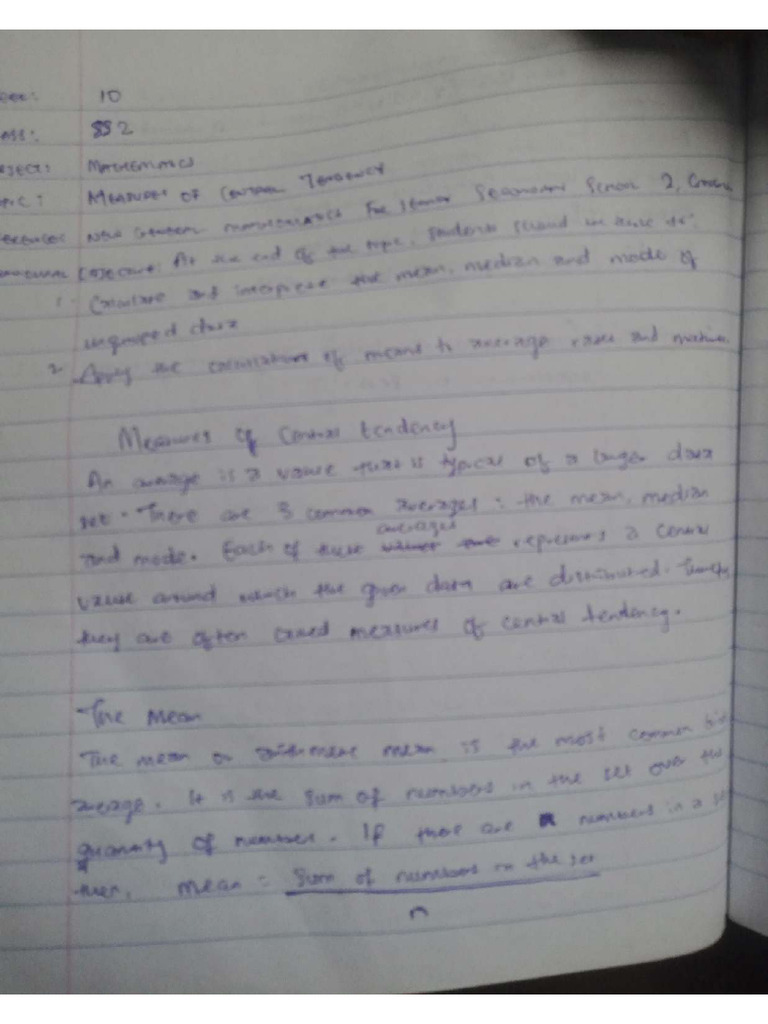 10
SS2
MATHEMATICS
MEASURES OF CENTRAL TENDENCY
NEW GENERAL MATHEMATICS FOR SENIOR SECONDARY SCHOOL 2,
At the end of the topic, students should be able to:
1. Calculate and interprete the mean, median and mode of
ungrouped data
2. Apply the calculation of means to average rates and mixtures.
Measures of Central tendency
An average is a value that is typical of a larger data
set. There are 3 common averages: the mean, median
averages
and mode. Each of these represents a central
value around which the given data are distributed.
they are often called measures of central tendency.
The Mean
The mean or arithmetic mean is the most common
average. It is the sum of numbers in the set over the
quantity of numbers. If there are n numbers in a
then, mean = Sum of numbers in the set
n